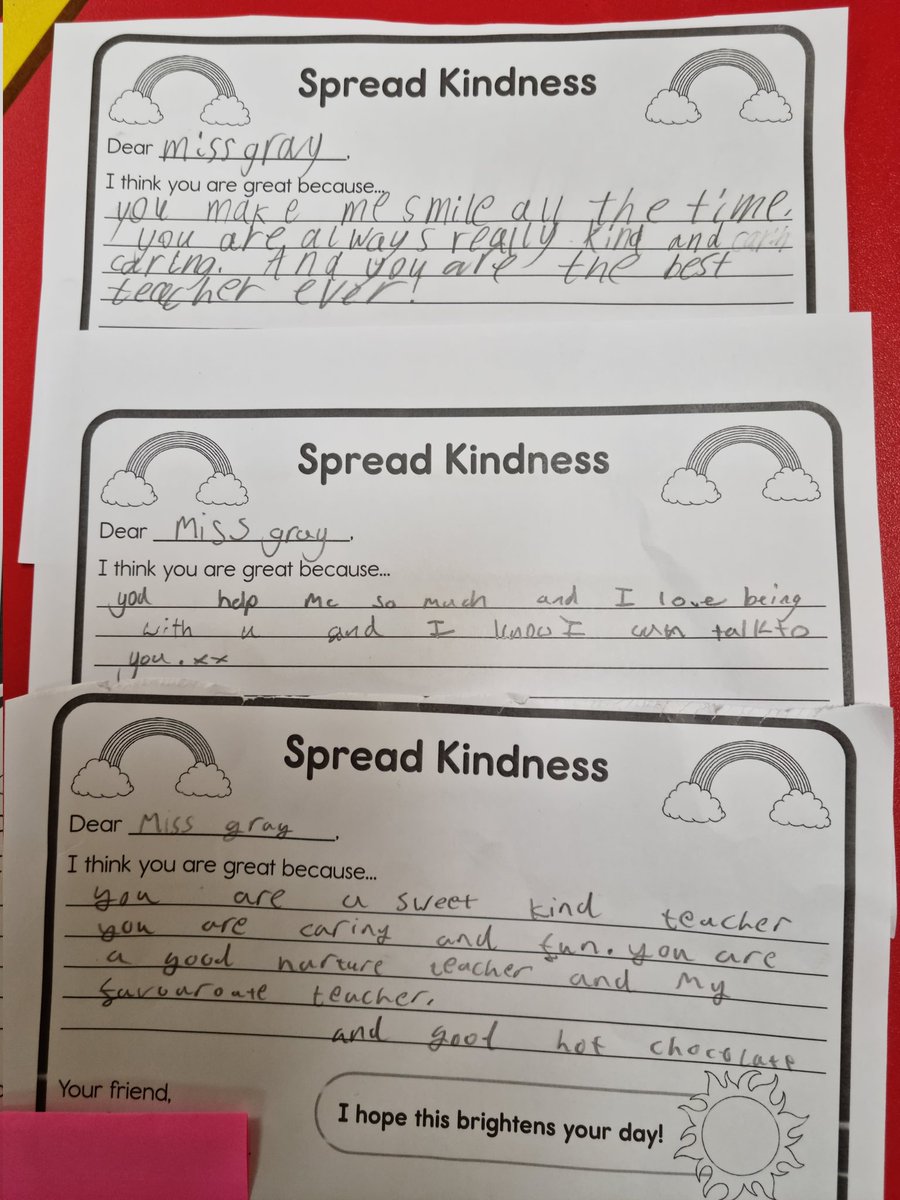 Spread Kindness
Dear miss gray,
I think you are great because...
you make me smile all the time.
you are always really kind and
caring. And you are the best
teacher ever!
Spread Kindness
Dear Miss gray,
I think you are great because...
you help me so much and I love being
with u and I know I can talk to
you. xx
Spread Kindness
Dear Miss gray,
I think you are great because...
you are a sweet kind teacher
you are caring and fun. you are
a good nurture teacher and My
favouroute teacher.
and good hot chocolate
Your friend,
I hope this brightens your day!